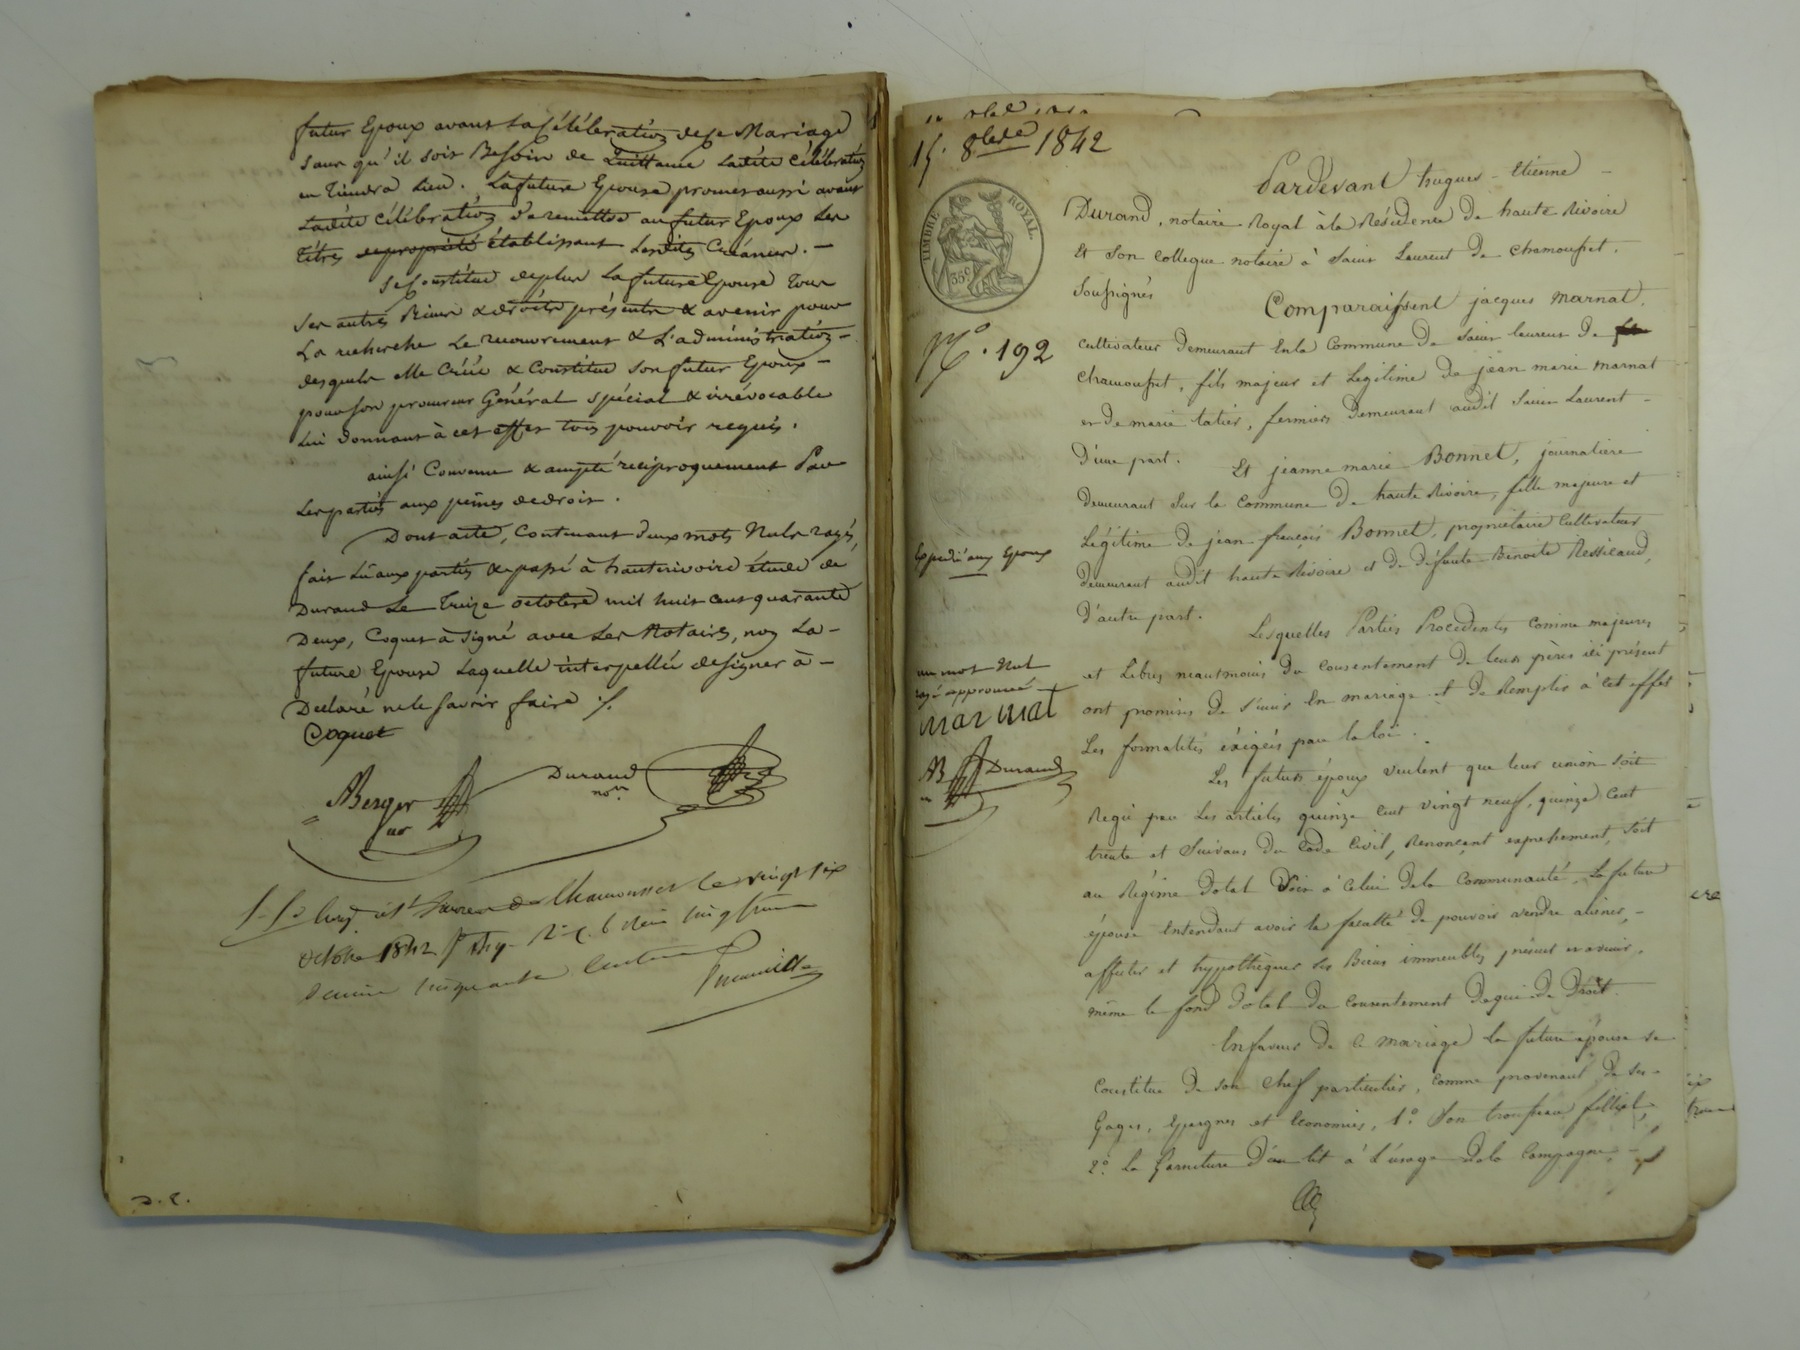 futur Epoux avant la Célébration de ce Mariage
sans qu'il soit Besoin de Quittance ladite Célébration
en tiendra Lieu. La future Epouse promet aussi avant
Ladite Célébration de remettre au futur Epoux Les
titres de propriété établissant Lesdites Créances. —
Se Constitue de plus La future Epouse tous
Ses autres Biens & droits présents & avenir pour
La recherche Le recouvrement & L'administration —
desquels elle Créée & Constitue Son futur Epoux —
pour son procureur Général spécial & irrévocable
Lui donnant à cet effet tous pouvoir requis.
ainsi Convenu & accepté réciproquement Par
Les parties aux peines de droit.
Dont acte, Contenant deux mots Nuls rayés,
fait Lu aux parties & passé à hauterivoire étude de
Durand Le treize octobre mil huit cent quarante
Deux, Coquet à signé avec Les Notaires, non La —
future Epouse Laquelle interpellée de signer à —
Déclaré ne le savoir faire ./.
Coquet
ABerger
Durand
nore
octobre 1842
cinquante Centimes
15. 8bre 1842
TIMBRE ROYAL.
35c
No. 192
Expédié aux Epoux
un mot Nul
rayé approuvé
marnat
AB Durand
Pardevant hugues - Etienne —
Durand, notaire Royal à la Résidence de haute Rivoire
Et Son Collegue notaire à Saint Laurent de Chamousset.
Soussignés
Comparaissent jacques Marnat,
Cultivateur demeurant En la Commune de Saint laurent de
Chamousset, fils majeur et Legitime de jean marie marnat
et De marie tatier, fermiers demeurant audit Saint Laurent —
D'une part.
Et jeanne marie Bonnet, journaliere
demeurant Sur la Commune de haute Rivoire, fille majeure et
Légitime de jean françois Bonnet, proprietaire Cultivateur
demeurant audit haute Rivoire et de défunte Benoite Ressicaud,
d'autre part.
Lesquelles Parties Procédentes comme majeures
et Libres neantmoins du Consentement de leurs pères ici présent
ont promises de S'unir En mariage et de Remplir à cet effet
Les formalités éxigées par la loi.
Les futurs époux veulent que leur union soit
Regie par Les articles quinze cent vingt neuf, quinze Cent
trente et Suivans du Code Civil, Renonçant expressement, soit
au Régime Dotal Soit à Celui de la Communauté. La future
épouse Entendant avoir la faculté de pouvoir vendre aliener, —
affecter et hypothéquer Ses Biens immeubles présent et avenir,
même le fond Dotal du Consentement De qui de Droit.
En faveur de ce mariage La future épouse se
Constitue De son Chef particulier, comme provenant de ses —
Gages, Epargnes et Economies, 1.° Son trousseau
2.° La Garniture d'un lit à L'usage de la Campagne, —